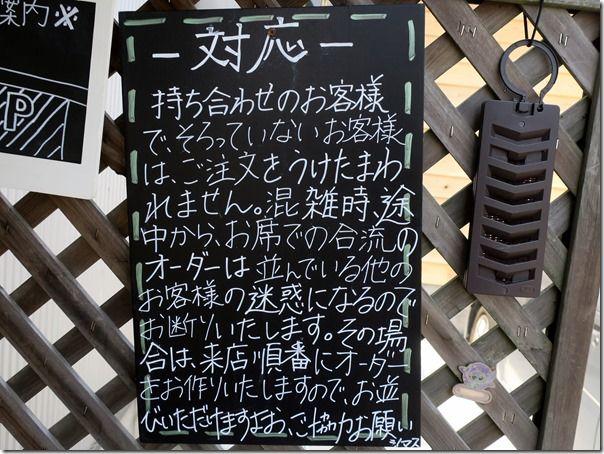 案内※
P
－対応－
持ち合わせのお客様
でそろっていないお客様
は、ご注文をうけたまわ
れません。混雑時、途
中から、お席での合流の
オーダーは並んでいる他の
お客様の迷惑になるので
お断りいたします。その場
合は、来店順番にオーダー
をお作りいたしますので、お並
びいただけますよお、ご協力お願い
シマス